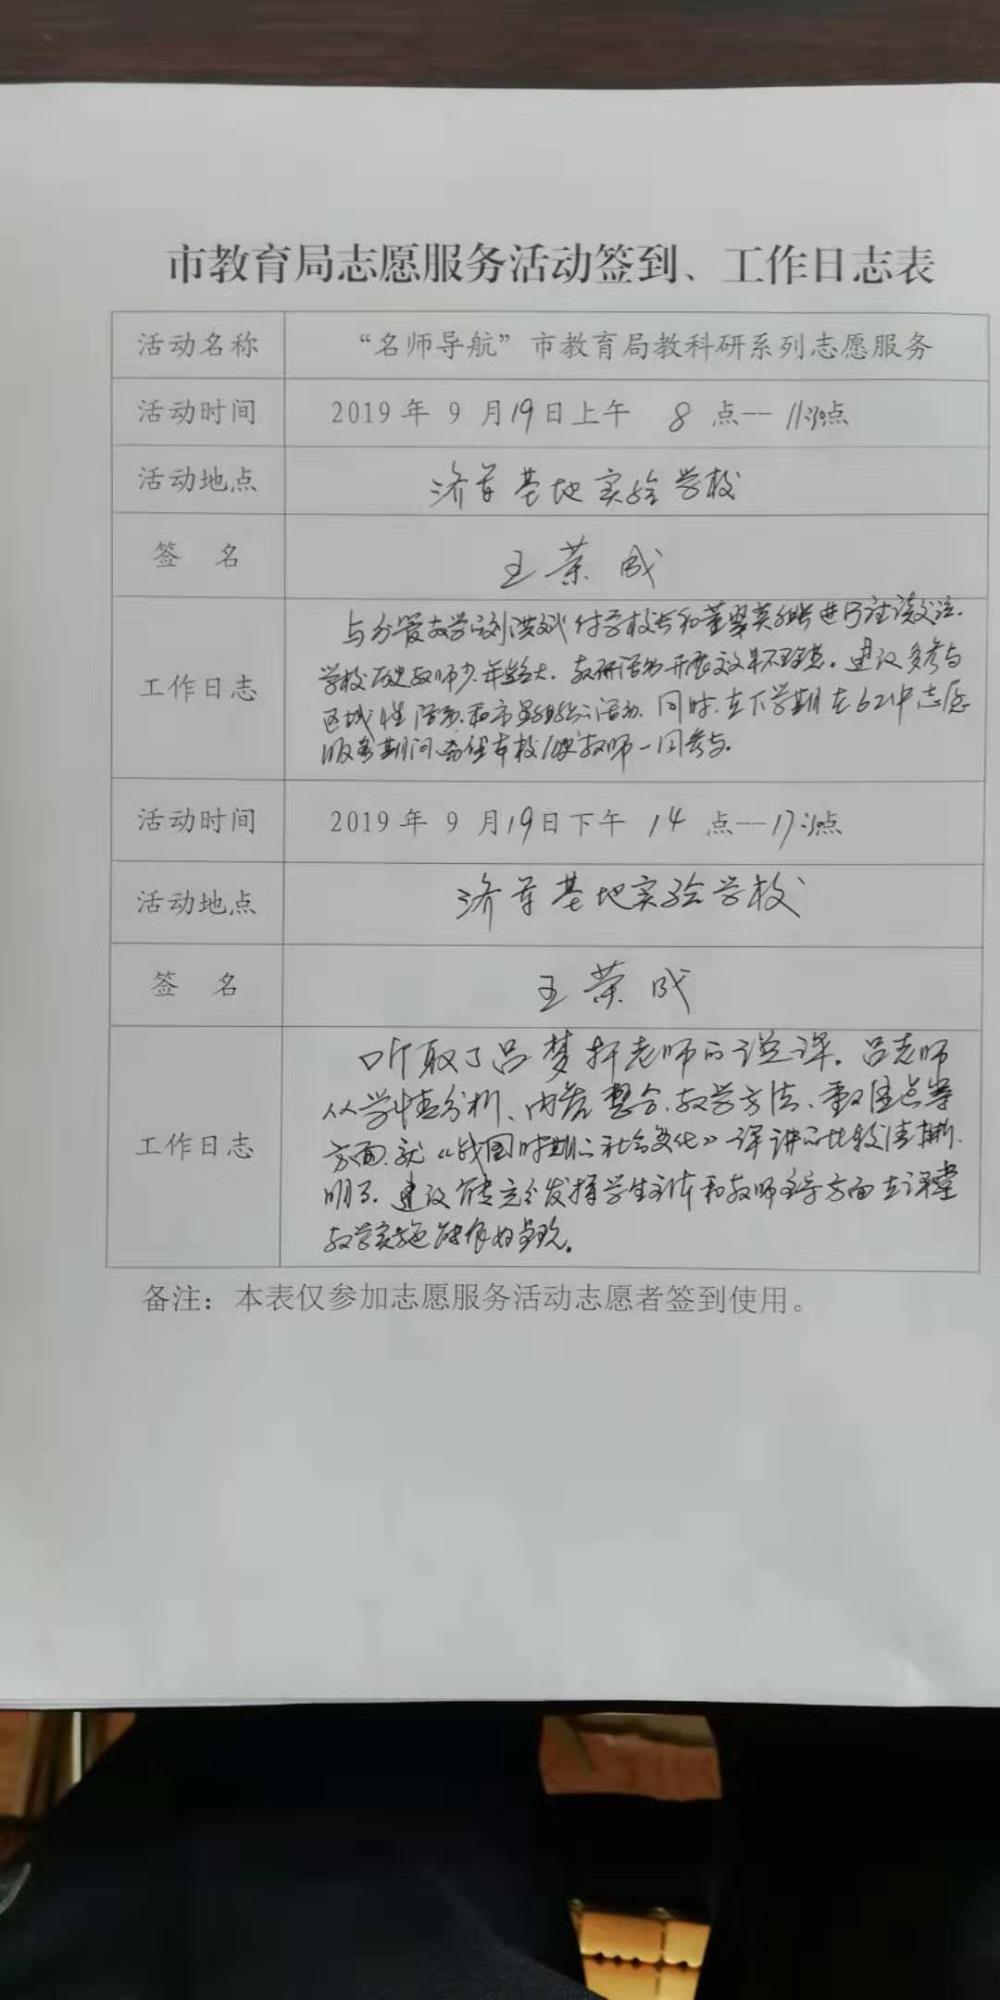 市教育局志愿服务活动签到、工作日志表
活动名称 “名师导航”市教育局教科研系列志愿服务
活动时间 2019年 9 月19日上午 8 点--11:30点
活动地点 济军基地实验学校
签 名 王荣成
与分管教学的刘洪斌付学校长和董翠英组长进行座谈交流.
学校历史教师少.年龄大.教研活动开展效果不理想。建议多参与
工作日志
区域性活动.和市县组织的活动.同时.在下学期在62中志愿
服务期间.希望本校历史教师一同参与.
活动时间 2019年 9 月19日下午 14 点--17:30点
活动地点 济军基地实验学校
签 名 王荣成
听取了吕梦轩老师的说课.吕老师
从学情分析、内容整合.教学方法、重难点等
工作日志 方面.就《战国时期的社会变化》一课讲的比较清晰.
明了.建议能充分发挥学生主体和教师主导方面在课堂
教学实施能有好的体现.
备注：本表仅参加志愿服务活动志愿者签到使用。